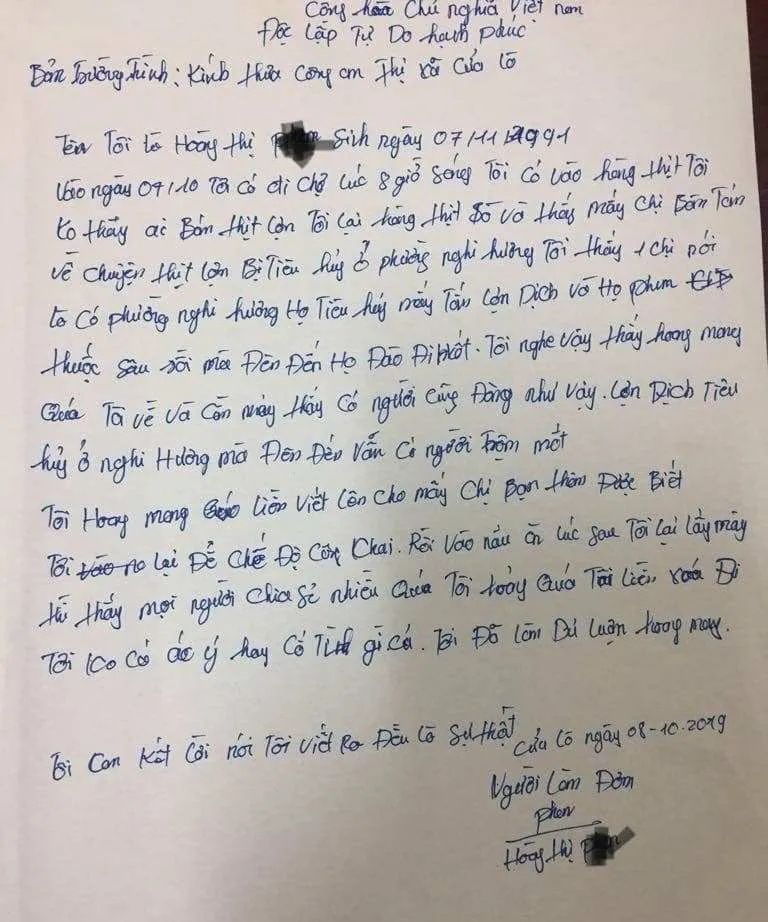 Cộng hòa Chủ nghĩa Việt nam
Độc lập Tự Do hạnh phúc
Bản Trường Trình: Kính thưa Công an Thị xã Cửa lò
Tên Tôi là Hoàng thị sinh ngày 07/11/1991
Vào ngày 07/10 Tôi có đi chợ lúc 8 giờ sáng Tôi có vào hàng thịt Tôi
ko thấy ai Bán thịt lợn Tôi lại hàng thịt Bò và thấy mấy chị Bàn Tán
về chuyện thịt lợn Bị Tiêu hủy ở phường nghi hương Tôi thấy 1 chị nói
là Có phường nghi hương Họ Tiêu hủy mấy Tấn lợn Dịch và Họ phun
thuốc sâu rồi mà Đêm Đến Họ Đào Đi hốt. Tôi nghe vậy thấy hoang mang
Quá Tôi về và cầm máy thấy có người cũng Đăng như vậy. lợn Dịch Tiêu
hủy ở nghi Hương mà Đêm Đến vẫn có người trộm mót
Tôi Hoang mang liền viết lên cho mấy chị Bạn thân Được Biết
Tôi lại Để Chế Độ Công khai. Rồi vào nấu ăn lúc sau Tôi lại lấy máy
thì thấy mọi người chia sẻ nhiều Quá Tôi hoảng Quá Tôi liền xoá Đi
Tôi ko có ác ý hay cố Tình gì cả. Tôi Đã làm Dư luận hoang mang.
Tôi Cam kết lời nói Tôi viết Ra Đều là Sự thật
Cửa lò ngày 08-10.2019
Người làm Đơn
phen
Hoàng thị